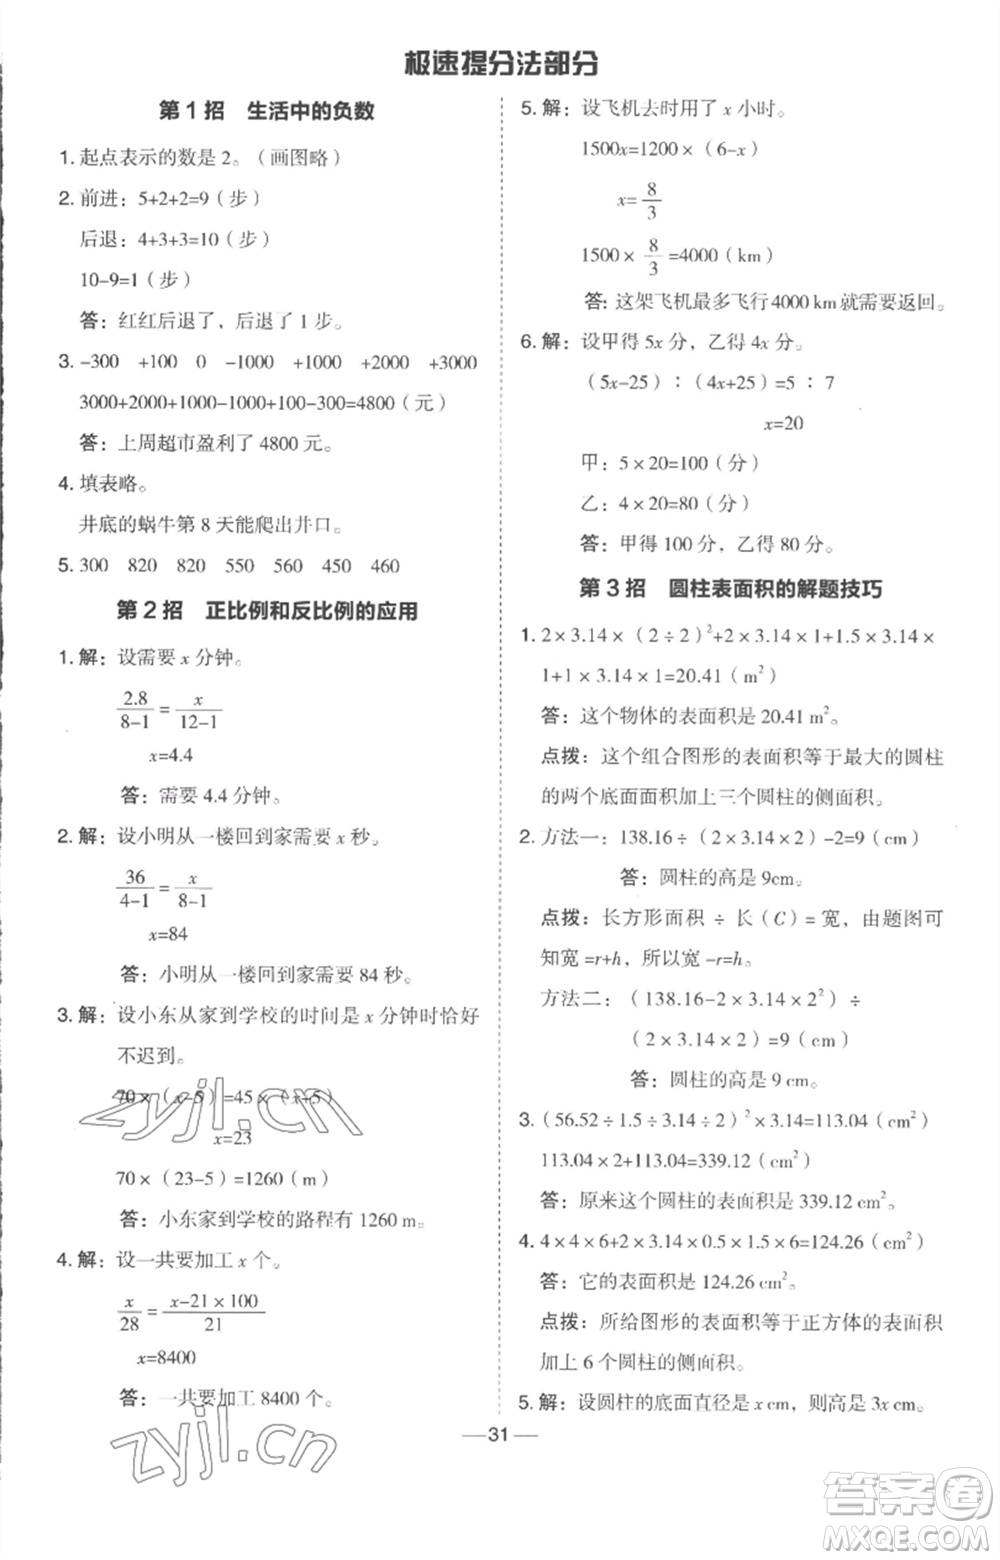 极速提分法部分
第1招 生活中的负数
1. 起点表示的数是 2。(画图略)
2. 前进：5+2+2=9（步）
后退：4+3+3=10（步）
10-9=1（步）
答：红红后退了，后退了 1 步。
3. -300 +100 0 -1000 +1000 +2000 +3000
3000+2000+1000-1000+100-300=4800（元）
答：上周超市盈利了 4800 元。
4. 填表略。
井底的蜗牛第 8 天能爬出井口。
5. 300 820 820 550 450 460
第2招 正比例和反比例的应用
1. 解：设需要 x 分钟。
2.8/(8-1) = x/(12-1)
x=4.4
答：需要 4.4 分钟。
2. 解：设小明从一楼回到家需要 x 秒。
36/(4-1) = x/(8-1)
x=84
答：小明从一楼回到家需要 84 秒。
3. 解：设小东从家到学校的时间是 x 分钟时恰好
不迟到。
70×（x-5）=45×（x+5）
x=23
70×（23-5）=1260（m）
答：小东家到学校的路程有 1260 m。
4. 解：设一共要加工 x 个。
x/28 = (x-21×100)/21
x=8400
答：一共要加工 8400 个。
5. 解：设飞机去时用了 x 小时。
1500x=1200×（6-x）
x=8/3
1500× 8/3 =4000（km）
答：这架飞机最多飞行 4000 km 就需要返回。
6. 解：设甲得 5x 分，乙得 4x 分。
（5x-25）：（4x+25）=5：7
x=20
甲：5×20=100（分）
乙：4×20=80（分）
答：甲得 100 分，乙得 80 分。
第3招 圆柱表面积的解题技巧
1. 2×3.14×（2÷2）²+2×3.14×1+1.5×3.14×
1+1×3.14×1=20.41（m²）
答：这个物体的表面积是 20.41 m²。
点拨：这个组合图形的表面积等于最大的圆柱
的两个底面面积加上三个圆柱的侧面积。
2. 方法一：138.16÷（2×3.14×2）-2=9（cm）
答：圆柱的高是 9cm。
点拨：长方形面积 ÷ 长（C）= 宽，由题图可
知宽 =r+h，所以宽 -r=h。
方法二：（138.16-2×3.14×2²）÷
（2×3.14×2）=9（cm）
答：圆柱的高是 9 cm。
3.（56.52÷1.5÷3.14÷2）²×3.14=113.04（cm²）
113.04×2+113.04=339.12（cm²）
答：原来这个圆柱的表面积是 339.12 cm²。
4. 4×4×6+2×3.14×0.5×1.5×6=124.26（cm²）
答：它的表面积是 124.26 cm²。
点拨：所给图形的表面积等于正方体的表面积
加上 6 个圆柱的侧面积。
5. 解：设圆柱的底面直径是 x cm，则高是 3x cm。
31
zyjl.cn
zyjl.cn
答案圈
MXQE.COM